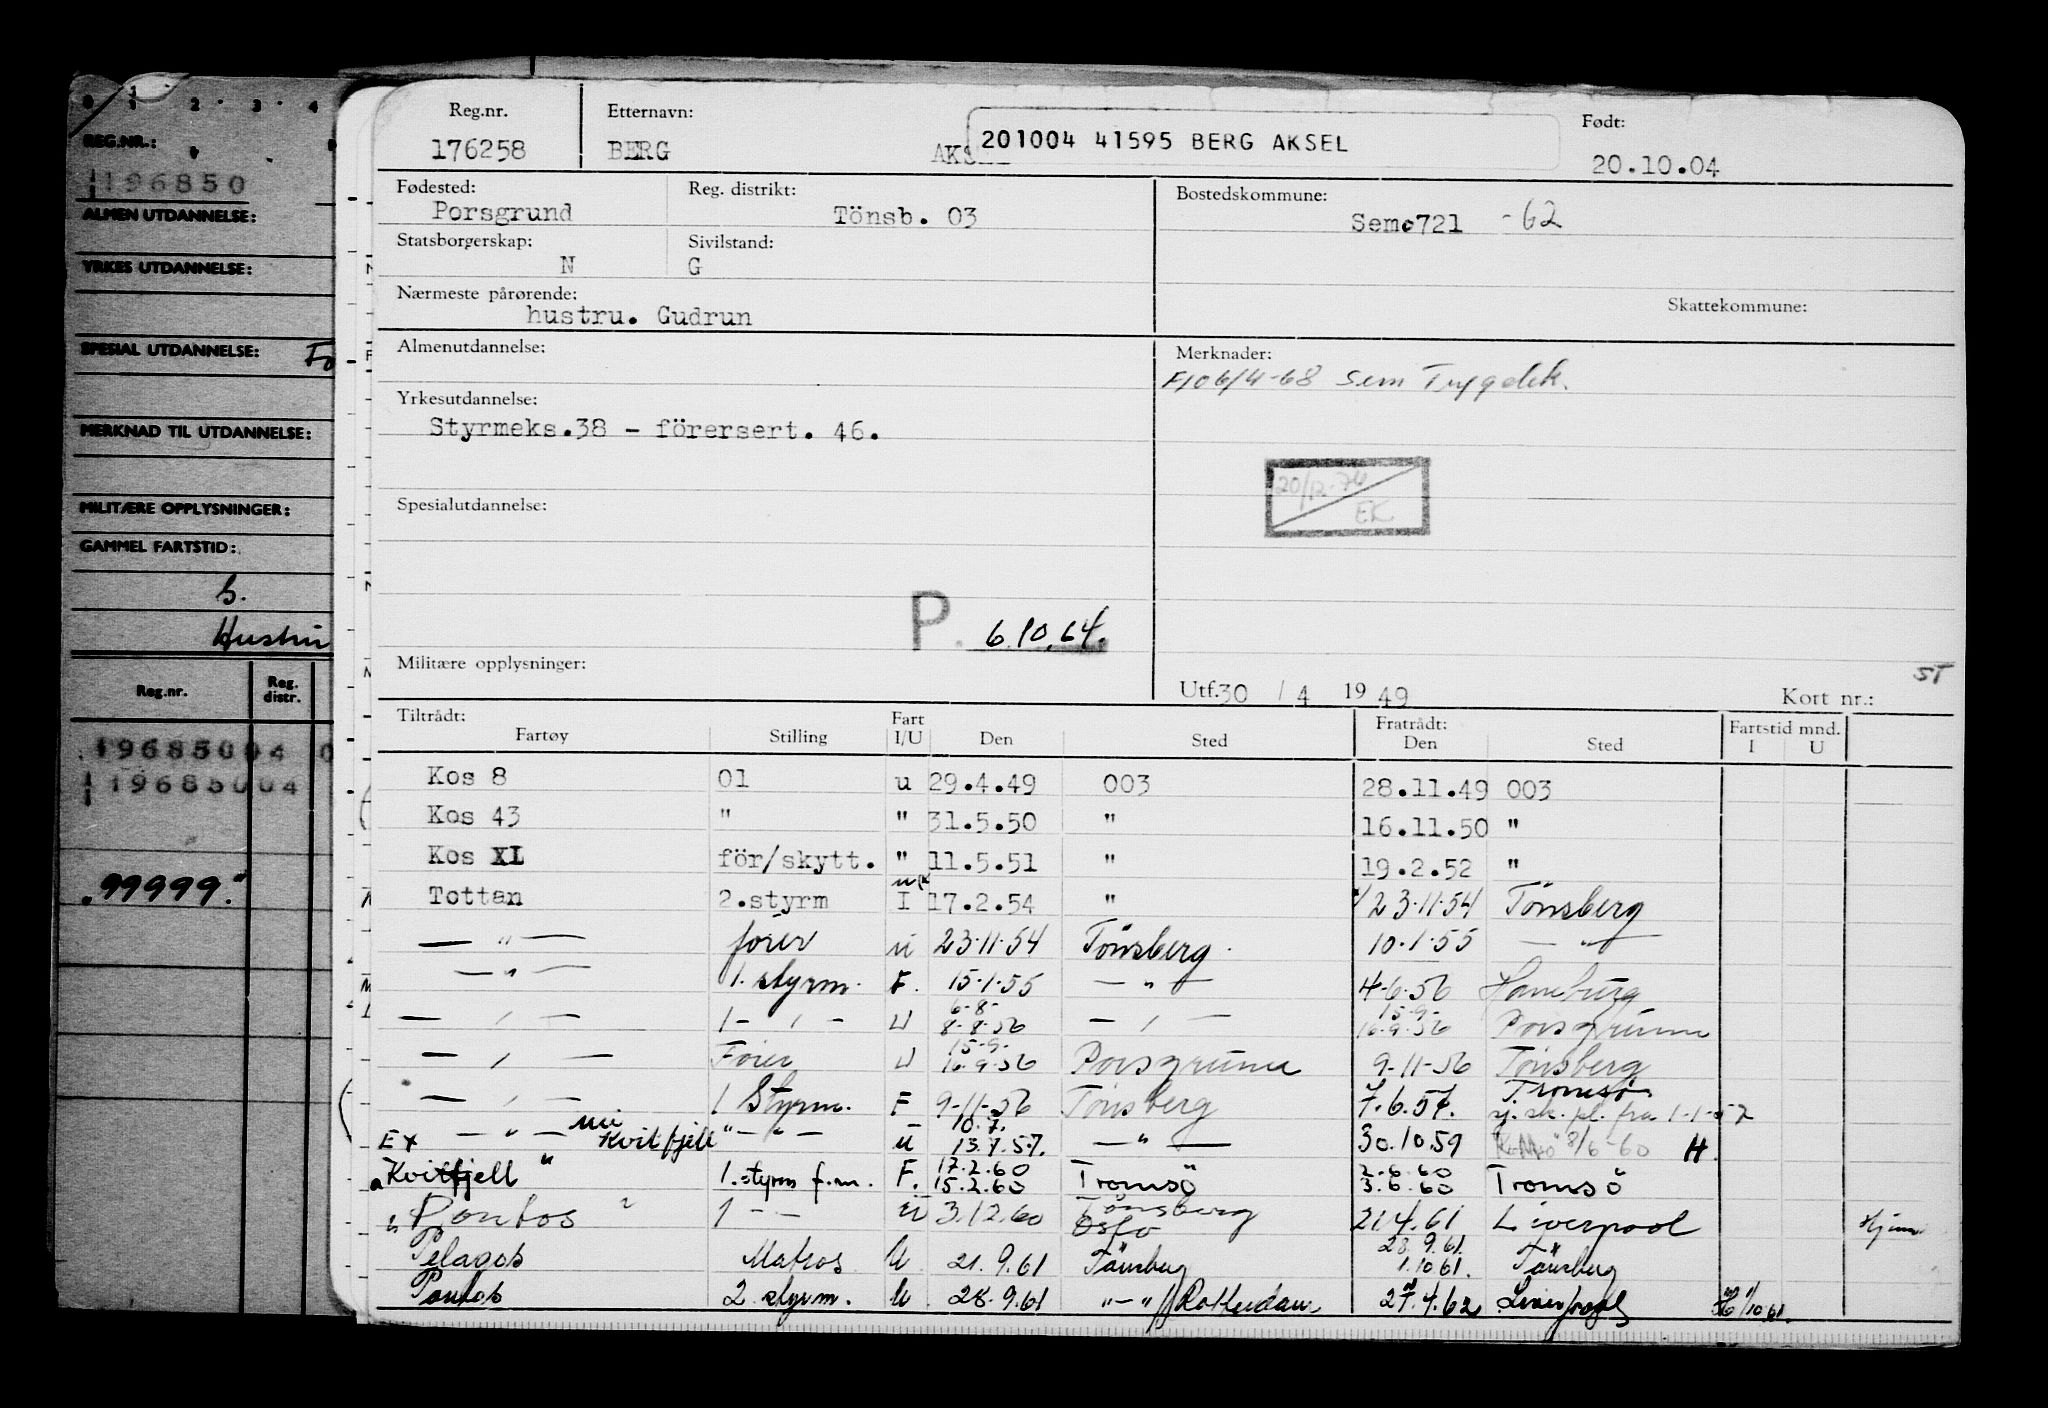 0 1 2 3 4
REG.NR.:
196850
ALMEN UTDANNELSE:
YRKES UTDANNELSE:
SPESIAL UTDANNELSE: Fo
MERKNAD TIL UTDANNELSE:
MILITÆRE OPPLYSNINGER:
GAMMEL FARTSTID:
Hustru
Reg.nr. Reg. distr.
19685004 0
19685004
"99999"
Reg.nr. Etternavn: Født:
176258 BERG 201004 41595 BERG AKSEL 20.10.04
Fødested: Reg. distrikt: Bostedskommune:
Porsgrund Tönsb. 03 Sem 0721 -62
Statsborgerskap: Sivilstand:
N G
Nærmeste pårørende: Skattekommune:
hustru. Gudrun
Almenutdannelse: Merknader:
F106/4-68 Sem Trygdek.
Yrkesutdannelse:
Styrmeks.38 - förersert. 46.
20/12-74
EK
Spesialutdannelse:
P. 6.10.64.
Militære opplysninger:
ST
Utf. 30 / 4 19 49 Kort nr.:
Tiltrådt: Fart Fratrådt: Fartstid mnd.
Fartøy Stilling I/U Den Sted Den Sted I U
Kos 8 01 u 29.4.49 003 28.11.49 003
Kos 43 " " 31.5.50 " 16.11.50 "
Kos XL för/skytt. " 11.5.51 " 19.2.52 "
Tottan 2.styrm I 17.2.54 " 23.11.54 Tönsberg
— " — fører u 23.11.54 Tönsberg. 10.1.55 — " —
— " — 1. styrm. F. 15.1.55 — " — 4-6.56 Hamburg
6-8- 15-9-
— " — 1 - " - U 8-8-56 — " — 16-9-56 Porsgrunn
15-9-
— " — Fører U 16-9-56 Porsgrunn 9-11-56 Tönsberg
— " — 1 Styrm. F 9-11-56 Tönsberg 7.6.57. Tromsø
sj. sk. pl. fra 1-1-57
10.7.
Ex — " — nu Kvitfjell " - " - u 13.7.57. — " — 30.10.59 8/6-60 H.
17.2.60 2.6.60
Kvitfjell " 1. styrm f.m. F. 15.2.60 Tromsö 3.6.60 Tromsö
Tönsberg
Pontos " 1 - - U 3.12.60 Oslo 21.4.61 Liverpool
28.9.61.
Pelagos Matros U 21.9.61 Tönsberg 1.10.61. Tönsberg
Pontos 2 styrm. U 28.9.61 " - " / Rotterdam 27.4.62 Liverpool 1/10 61.